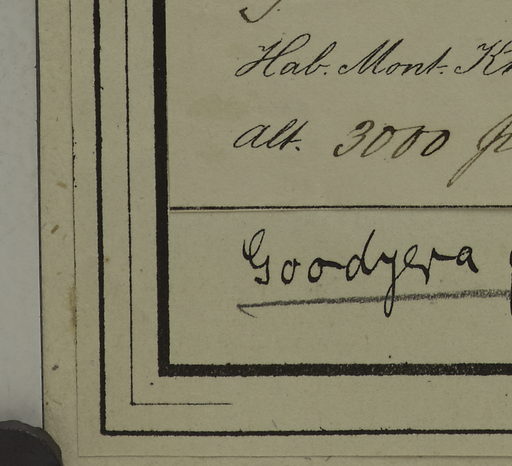 Hab. Mont. K
alt. 3000
Goodyera